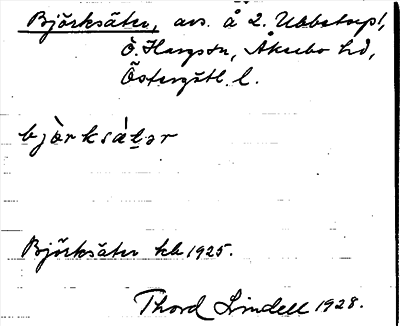 Björksäter, avs. å 2. Ubbetorp,
Ö. Hargs sn, Åkerbo hd,
Östergötl. l.
bjö̀rksátər
Björksäter kb 1925.
Thord Lindell 1928.